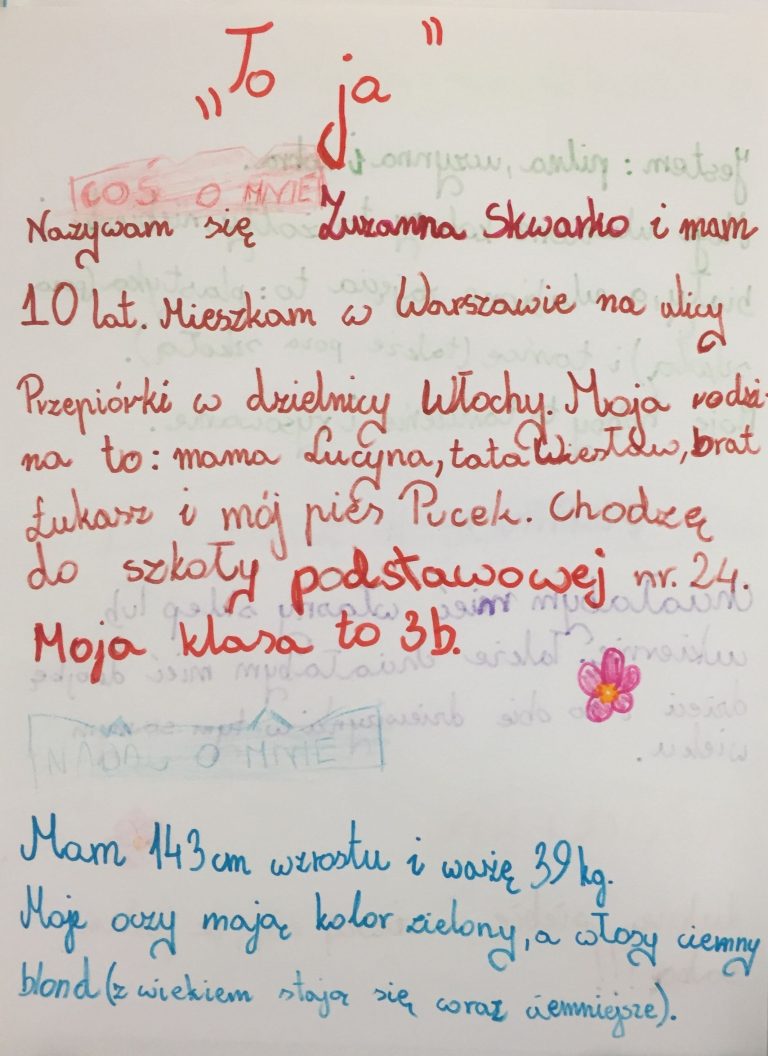 „To ja"
COŚ O MNIE
Nazywam się Zuzanna Skwarko i mam
10 lat. Mieszkam w Warszawie na ulicy
Przepiórki w dzielnicy Włochy. Moja rodzi-
na to: mama Lucyna, tata Wiesław, brat
Łukasz i mój pies Pucek. Chodzę
do szkoły podstawowej nr. 24.
Moja klasa to 3b.
O MNIE
Mam 143 cm wzrostu i ważę 39 kg.
Moje oczy mają kolor zielony, a włosy ciemny
blond (z wiekiem stają się coraz ciemniejsze).